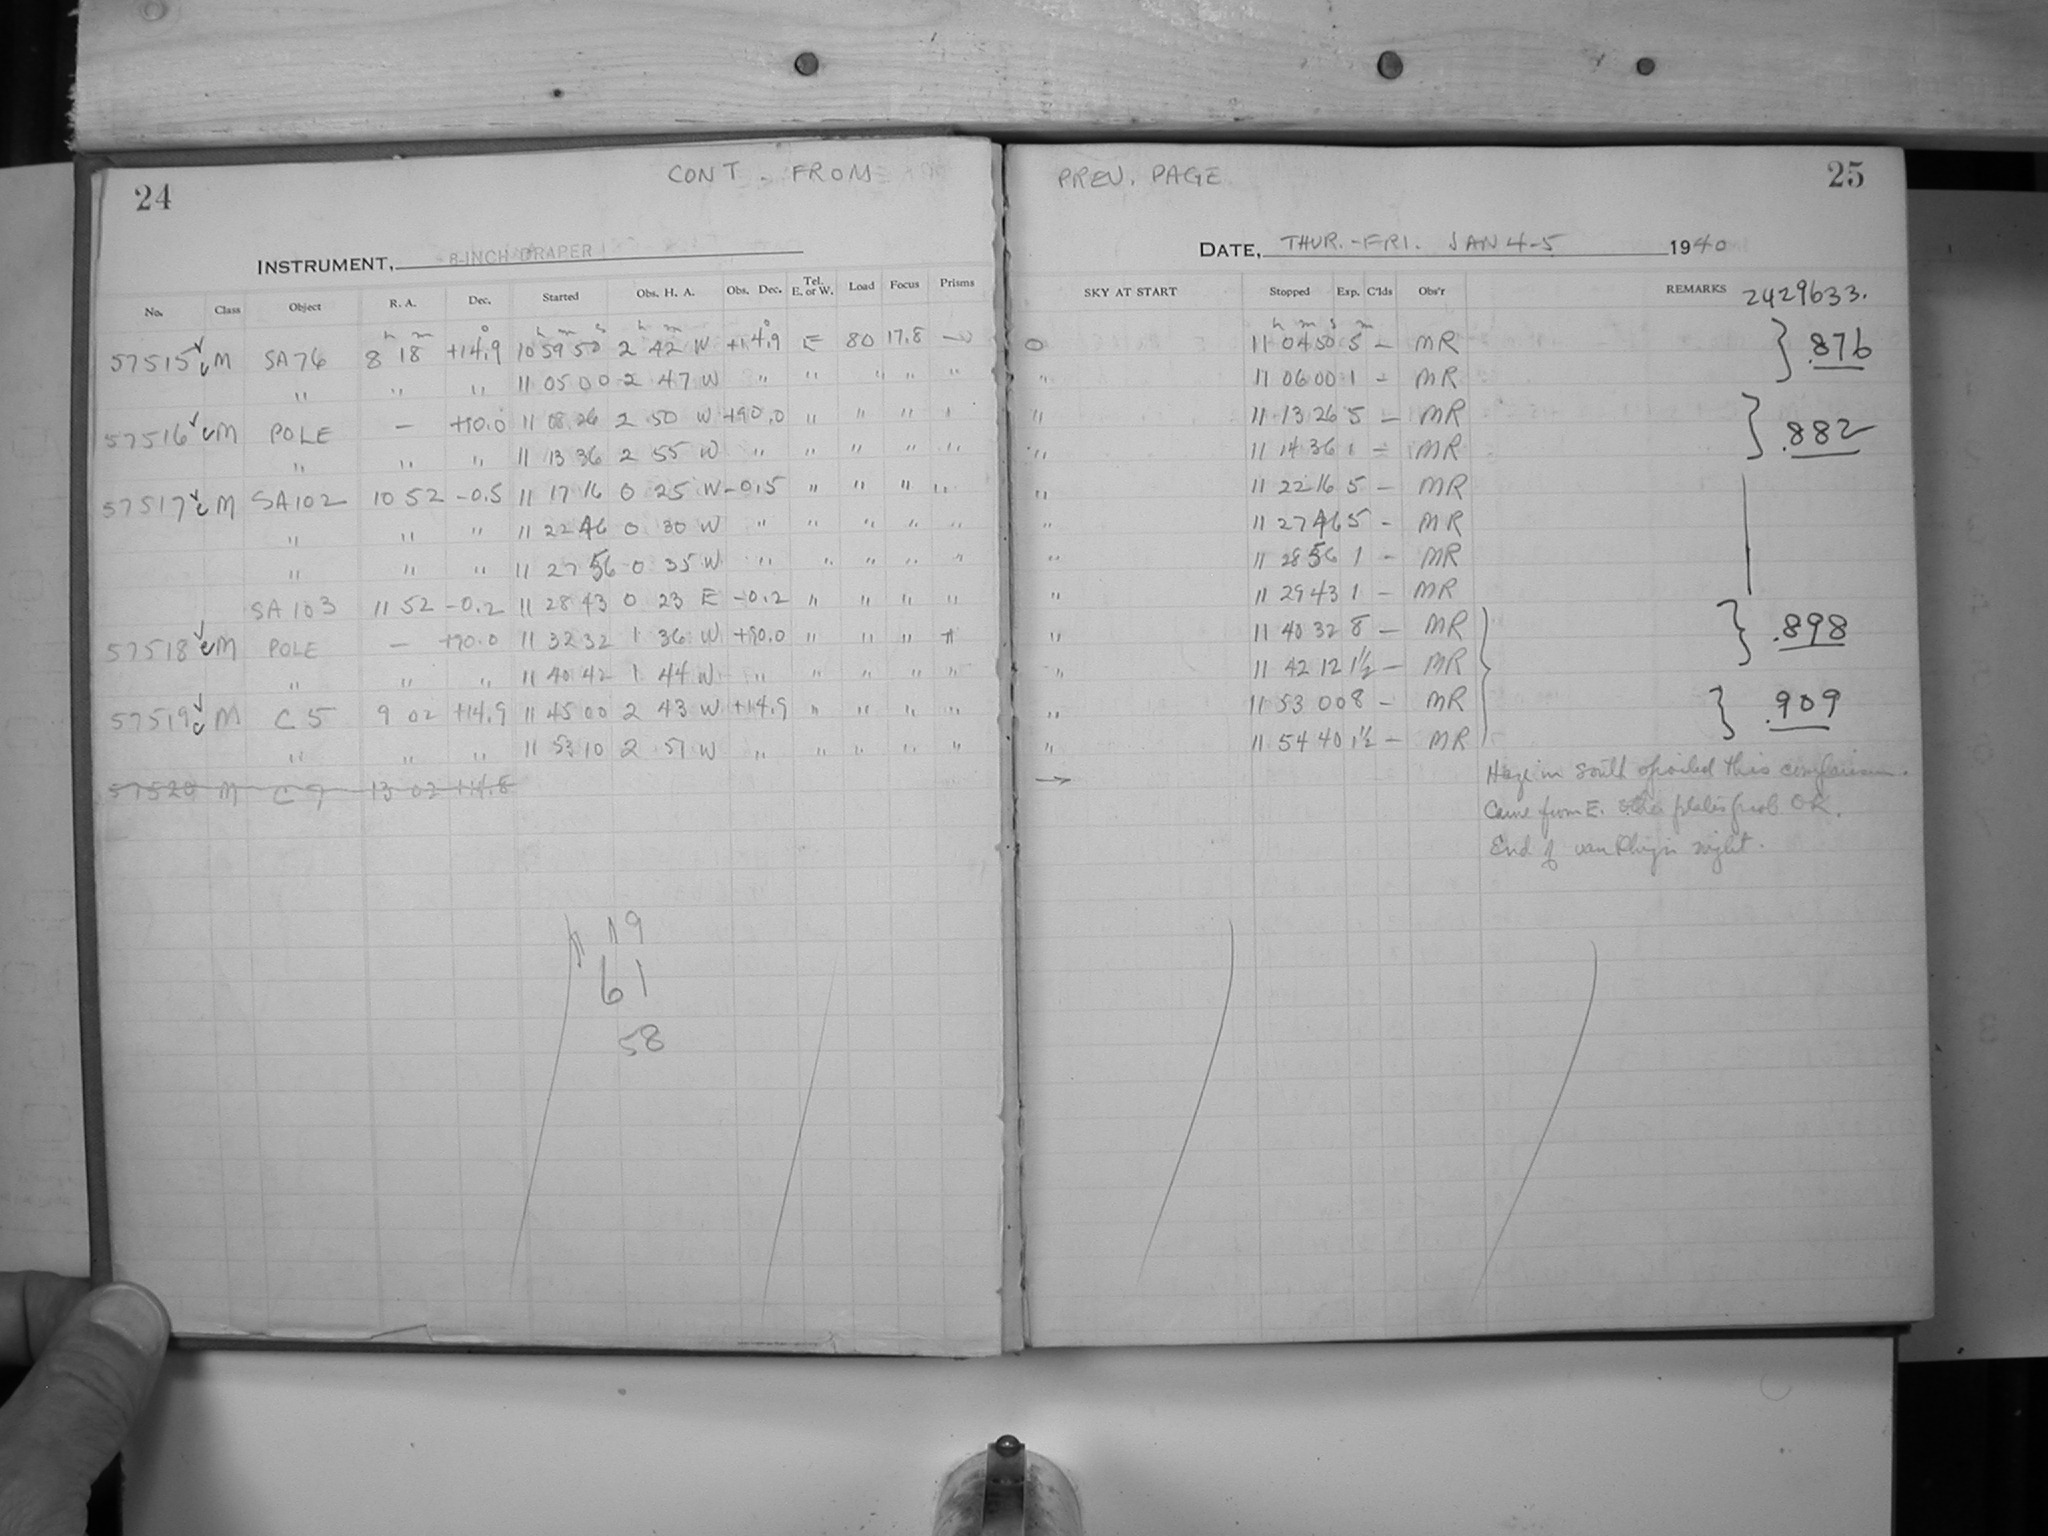 24
CONT. FROM
INSTRUMENT, 8-INCH DRAPER
No. Class Object R. A. Dec. Started Obs. H. A. Obs. Dec. Tel. E. or W. Load Focus Prisms
h m ° h m s h m °
57515 ✓ c M SA76 8 18 +14.9 10 59 50 2 42 W +14.9 E 80 17.8 —
" " " 11 05 00 2 47 W " " " " "
57516 ✓ c M POLE — +90.0 11 08 26 2 50 W +90.0 " " " "
" " " 11 13 36 2 55 W " " " " "
57517 ✓ c M SA102 10 52 -0.5 11 17 16 0 25 W -0.5 " " " "
" " " 11 22 46 0 30 W " " " " "
" " " 11 27 56 0 35 W " " " " "
SA103 11 52 -0.2 11 28 43 0 23 E -0.2 " " " "
57518 ✓ c M POLE — +90.0 11 32 32 1 36 W +90.0 " " " "
" " " 11 40 42 1 44 W " " " " "
57519 ✓ c M C5 9 02 +14.9 11 45 00 2 43 W +14.9 " " " "
" " " 11 53 10 2 51 W " " " " "
57520 M C7 13 02 +14.8
19
61
58
PREV. PAGE
25
DATE, THUR.-FRI. JAN 4-5 1940
SKY AT START Stopped Exp. C'lds Obs'r REMARKS 2429633.
h m s m
0 11 04 50 5 — MR } .876
" 11 06 00 1 — MR
" 11 13 26 5 — MR } .882
" 11 14 36 1 — MR
" 11 22 16 5 — MR
" 11 27 46 5 — MR
" 11 28 56 1 — MR
" 11 29 43 1 — MR
" 11 40 32 8 — MR } .898
" 11 42 12 1½ — MR
" 11 53 00 8 — MR } .909
" 11 54 40 1½ — MR
→ Haze in South spoiled this comparison.
Came from E. other plates prob OK.
End of van Rhijn night.